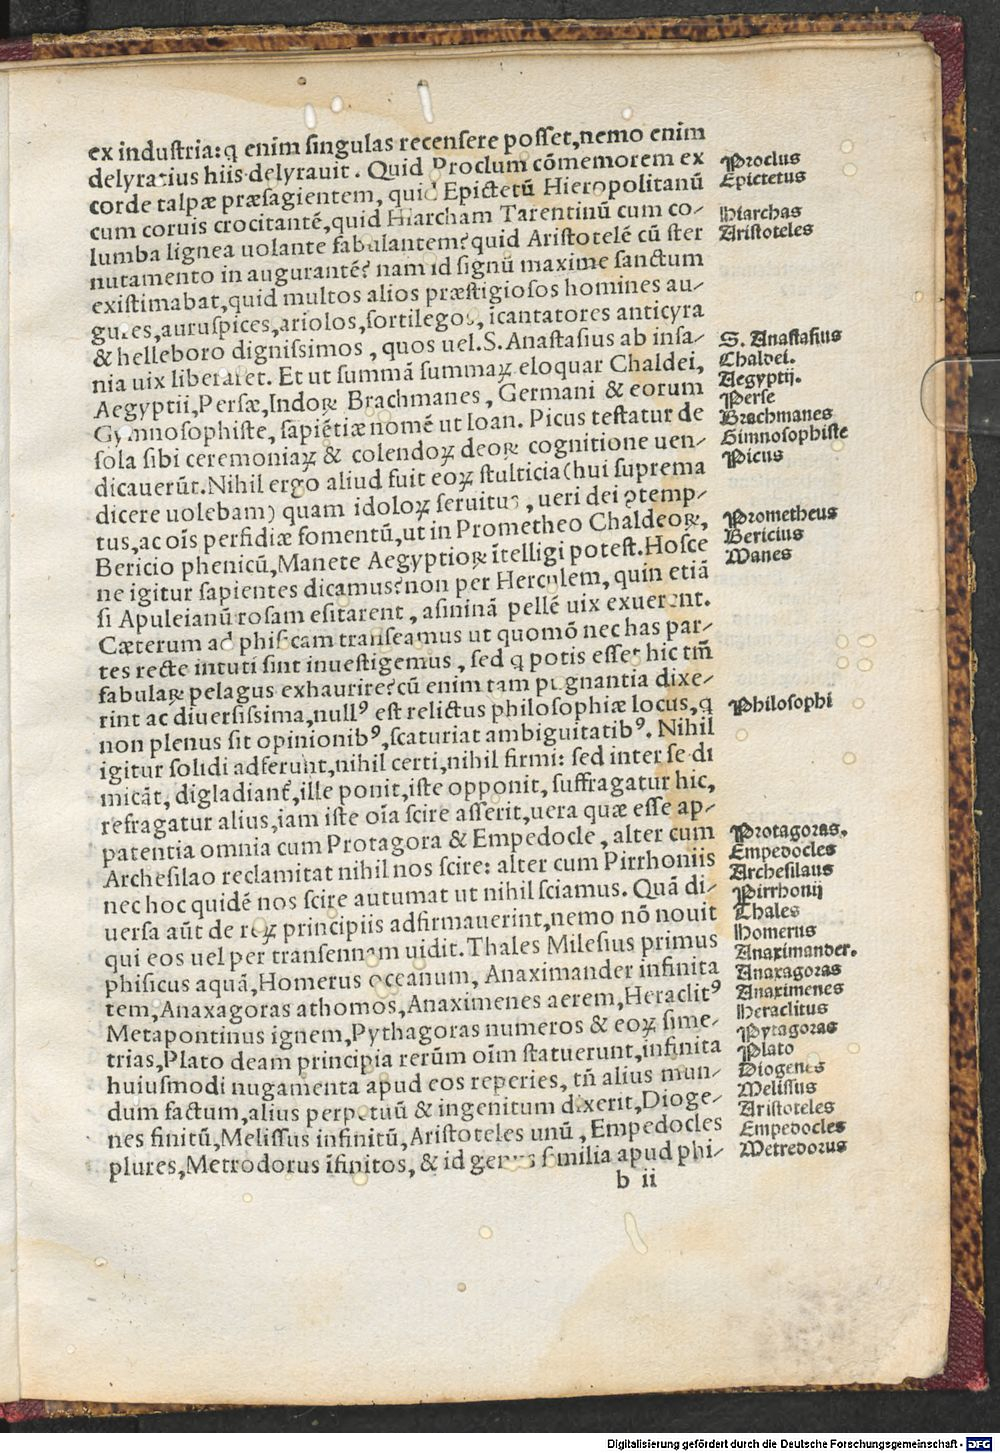 ex industria: ꝗ enim singulas recensere posset, nemo enim
delyratius hiis delyrauit. Quid Proclum cōmemorem ex
corde talpæ præsagientem, quid Epictetū Hieropolitanū
cum coruis crocitantē, quid Hiarcham Tarentinū cum co-
lumba lignea uolante fabulantem? quid Aristotelē cū ster
nutamento in augurantē? nam id signū maxime sanctum
existimabat, quid multos alios præstigiosos homines au-
gures, auruspices, ariolos, sortilegos, īcantatores anticyra
& helleboro dignissimos, quos uel. S. Anastasius ab insa-
nia uix liberaret. Et ut summā summaꝝ eloquar Chaldei,
Aegyptii, Persæ, Indoꝝ Brachmanes, Germani & eorum
Gymnosophiste, sapiētiæ nomē ut Ioan. Picus testatur de
sola sibi ceremoniaꝝ & colendoꝝ deoꝝ cognitione uen-
dicauerūt. Nihil ergo aliud fuit eoꝝ stulticia (hui suprema
dicere uolebam) quam idoloꝝ seruitus, ueri dei ꝯtemp-
tus, ac oīs perfidiæ fomentū, ut in Prometheo Chaldeoꝝ,
Bericio phenicū, Manete Aegyptioꝝ ītelligi potest. Hosce
ne igitur sapientes dicamus? non per Herculem, quin etiā
si Apuleianū rosam esitarent, asininā pellē uix exuerent.
Cæterum ad phisicam transeamus ut quomō nec has par-
tes recte intuti sint inuestigemus, sed ꝗ potis esset hic tm̄
fabulaꝝ pelagus exhaurire? cū enim tam pugnantia dixe-
rint ac diuersissima, nullꝰ est relictus philosophiæ locus, ꝗ
non plenus sit opinionibꝰ, scaturiat ambiguitatibꝰ. Nihil
igitur solidi adferunt, nihil certi, nihil firmi: sed inter se di
micāt, digladiant᷑, ille ponit, iste opponit, suffragatur hic,
refragatur alius, iam iste oīa scire asserit, uera quæ esse ap-
patentia omnia cum Protagora & Empedocle, alter cum
Archesilao reclamitat nihil nos scire: alter cum Pirrhoniis
nec hoc quidē nos scire autumat ut nihil sciamus. Quā di-
uersa aūt de reꝝ principiis adfirmauerint, nemo nō nouit
qui eos uel per transennam uidit. Thales Milesius primus
phisicus aquā, Homerus oceanum, Anaximander infinita
tem, Anaxagoras athomos, Anaximenes aerem, Heraclitꝰ
Metapontinus ignem, Pythagoras numeros & eoꝝ sime-
trias, Plato deam principia rerūm oīm statuerunt, infinita
huiusmodi nugamenta apud eos reperies, tn̄ alius mun-
dum factum, alius perpetuū & ingenitum dixerit, Dioge-
nes finitū, Melissus infinitū, Aristoteles unū, Empedocles
plures, Metrodorus īfinitos, & id genus similia apud phi-
b ii
Proclus
Epictetus
Hiarchas
Aristoteles
S. Anastasius
Chaldei.
Aegyptij.
Perse
Brachmanes
Gimnosophiste
Picus
Prometheus
Bericius
Manes
Philosophi
Protagoras.
Empedocles
Archesilaus
Pirrhonij
Thales
Homerus
Anaximander.
Anaxagoras
Anaximenes
Heraclitus
Pytagoras
Plato
Diogenes
Melissus
Aristoteles
Empedocles
Metredorus
Digitalisierung gefördert durch die Deutsche Forschungsgemeinschaft - DFG